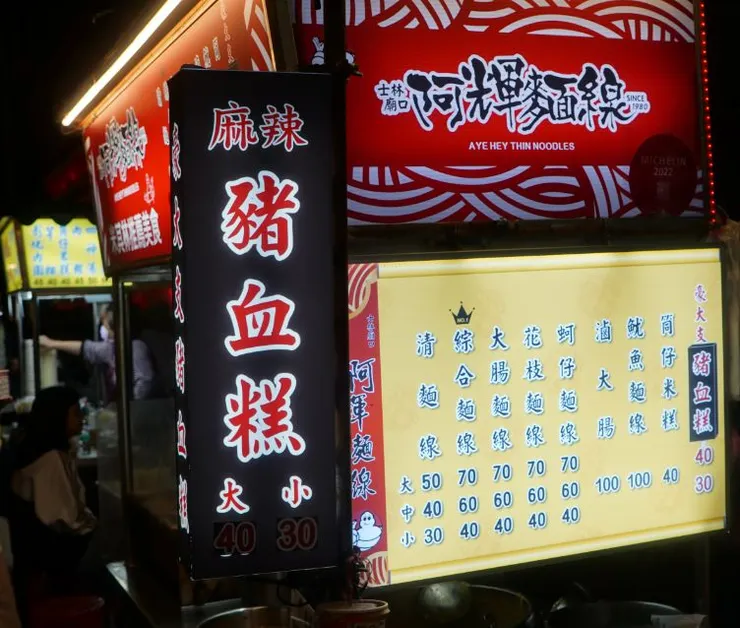 麻辣
豬血糕
大 小
40 30
士林
廟口
阿輝麵線
SINCE
1980
AYE HEY THIN NOODLES
MICHELIN
2022
士林廟口
阿輝麵線
清麵線
大50
中40
小30
NO.1
綜合麵線
70
60
40
大腸麵線
70
60
40
花枝麵線
70
60
40
蚵仔麵線
70
60
40
滷大腸
100
魷魚麵線
100
筒仔米糕
40
豪大支
豬血糕
40
30
豪大支豬血糕
阿輝麵線